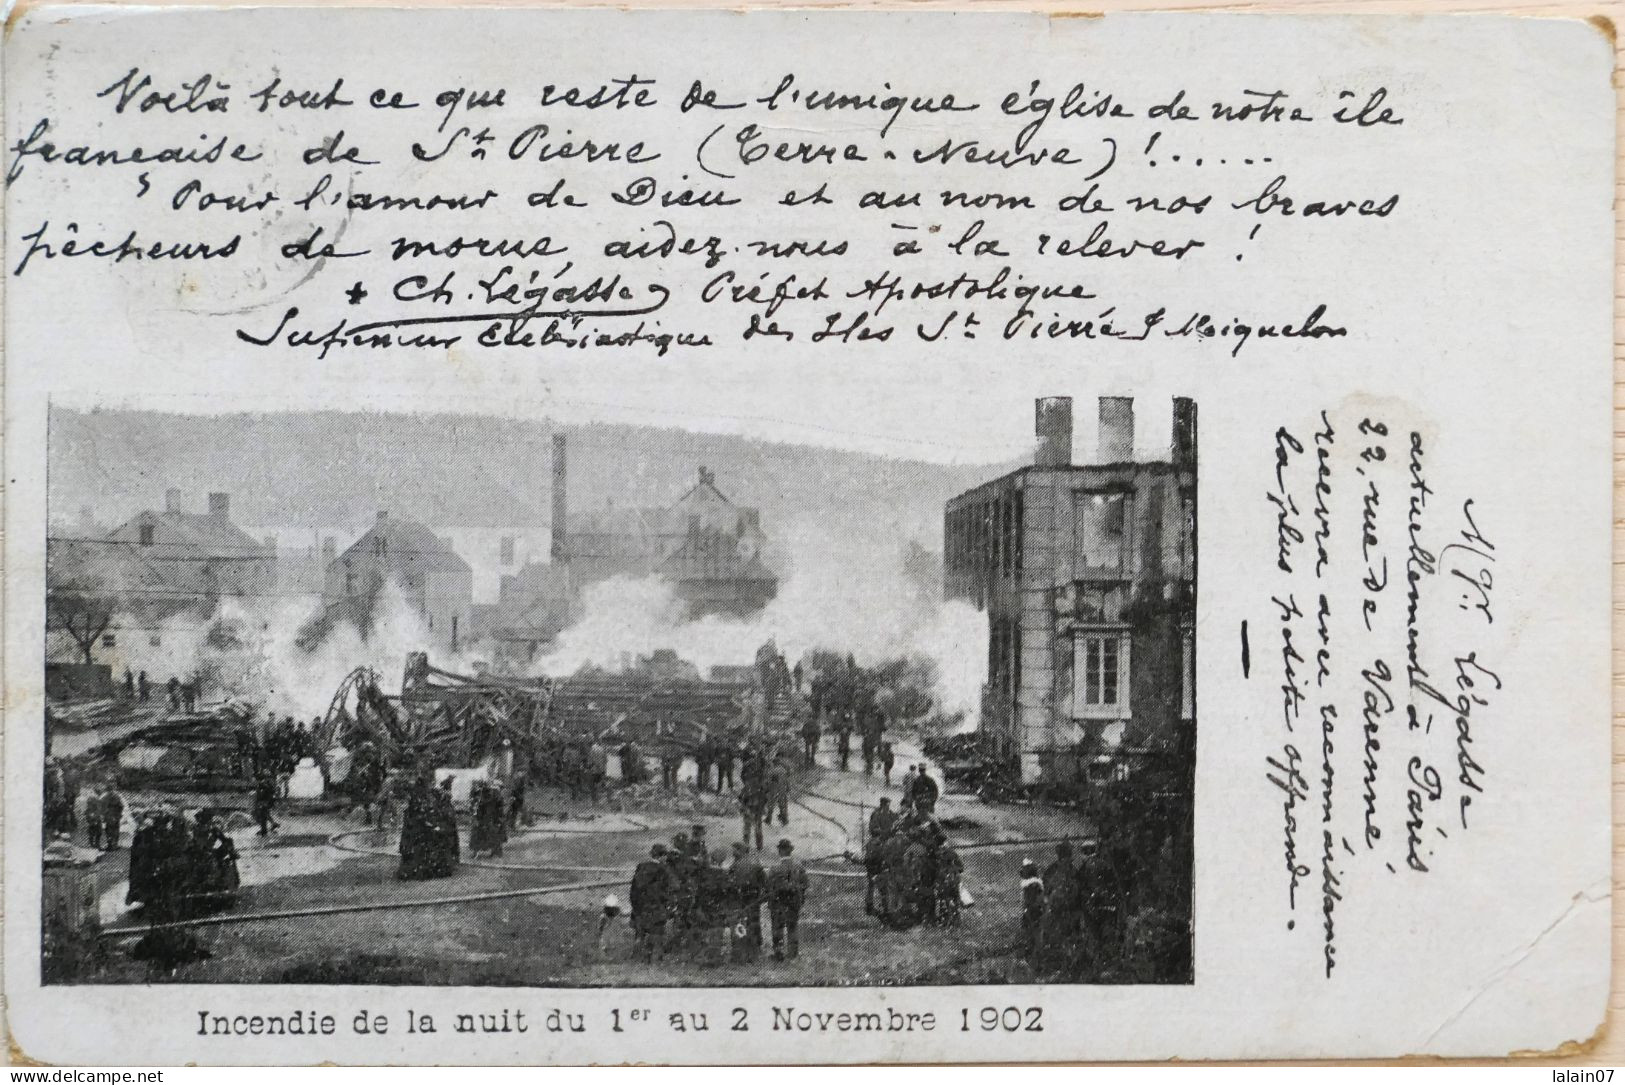 Voilà tout ce qui reste de l'unique église de notre île
française de St Pierre (Terre-Neuve) !......
Pour l'amour de Dieu et au nom de nos braves
pêcheurs de morue, aidez-nous à la relever !
* Ch. Légasse, Préfet Apostolique
Supérieur Ecclésiastique des Iles St Pierre & Miquelon
Mgr. Légasse
actuellement à Paris
22, rue de Varenne
recevra avec reconnaissance
la plus petite offrande.
Incendie de la nuit du 1er au 2 Novembre 1902
www.delcampe.net
lalain07